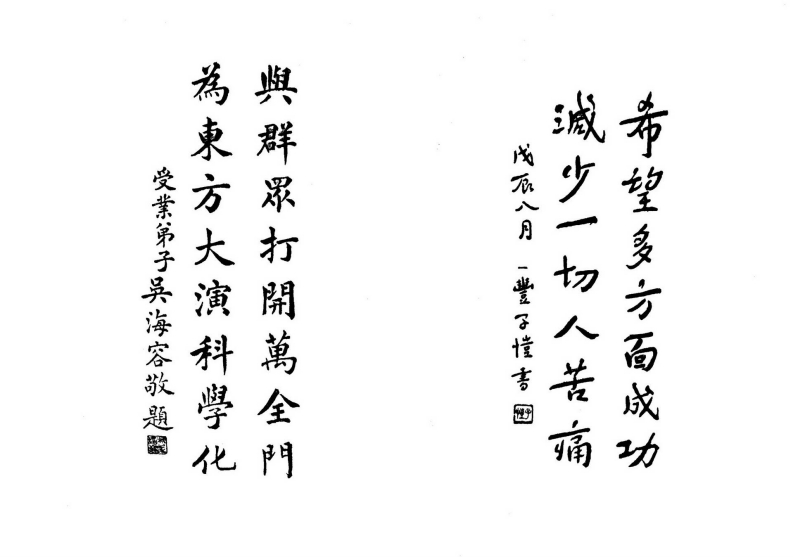 希望多方面成功
減少一切人苦痛
戊辰八月 一豐子愷書
與群眾打開萬全門
為東方大演科學化
受業弟子吳海容敬題